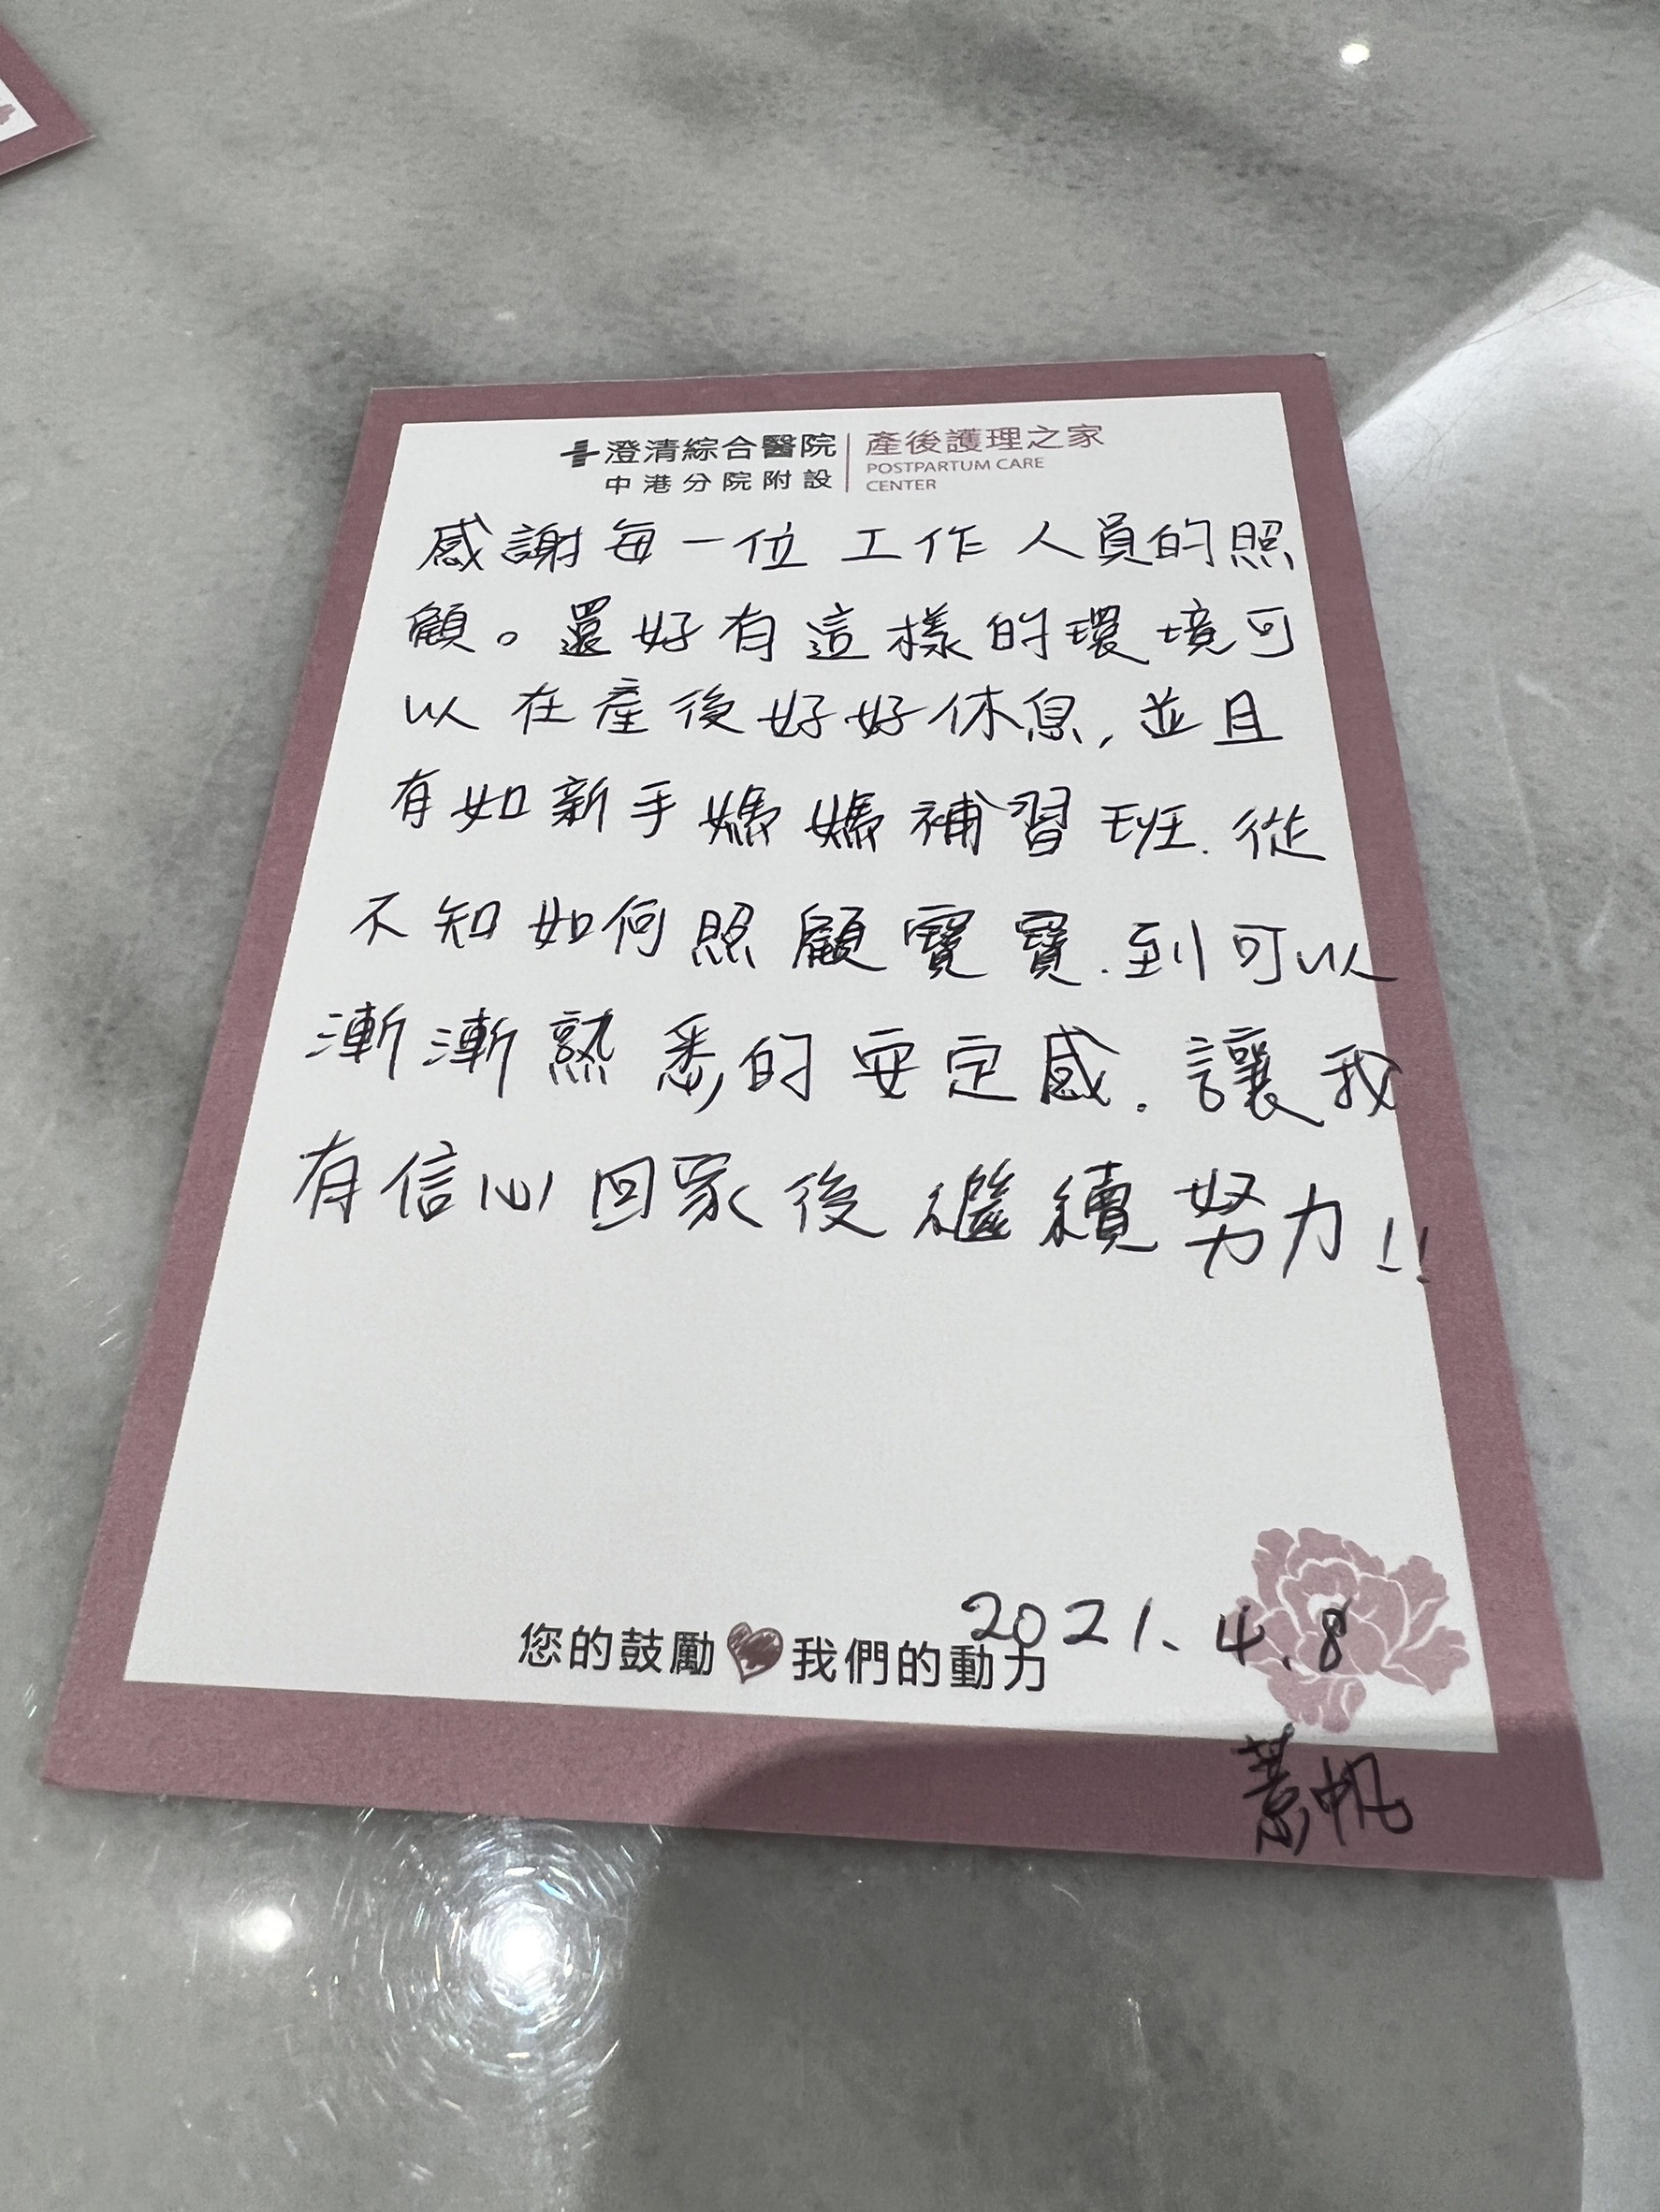 澄清綜合醫院
中港分院附設
產後護理之家
POSTPARTUM CARE
CENTER
感謝每一位工作人員的照
顧。還好有這樣的環境可
以在產後好好休息,並且
有如新手媽媽補習班.從
不知如何照顧寶寶.到可以
漸漸熟悉的安定感.讓我
有信心回家後繼續努力!!
2021.4.8
您的鼓勵 我們的動力
帆